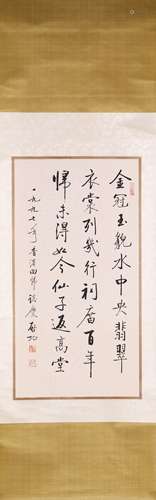 金冠玉貌水中央翡翠
衣裳列幾行祠廟百年
歸未得如今仙子返高堂
一九九七年香港回歸誌慶 啟功